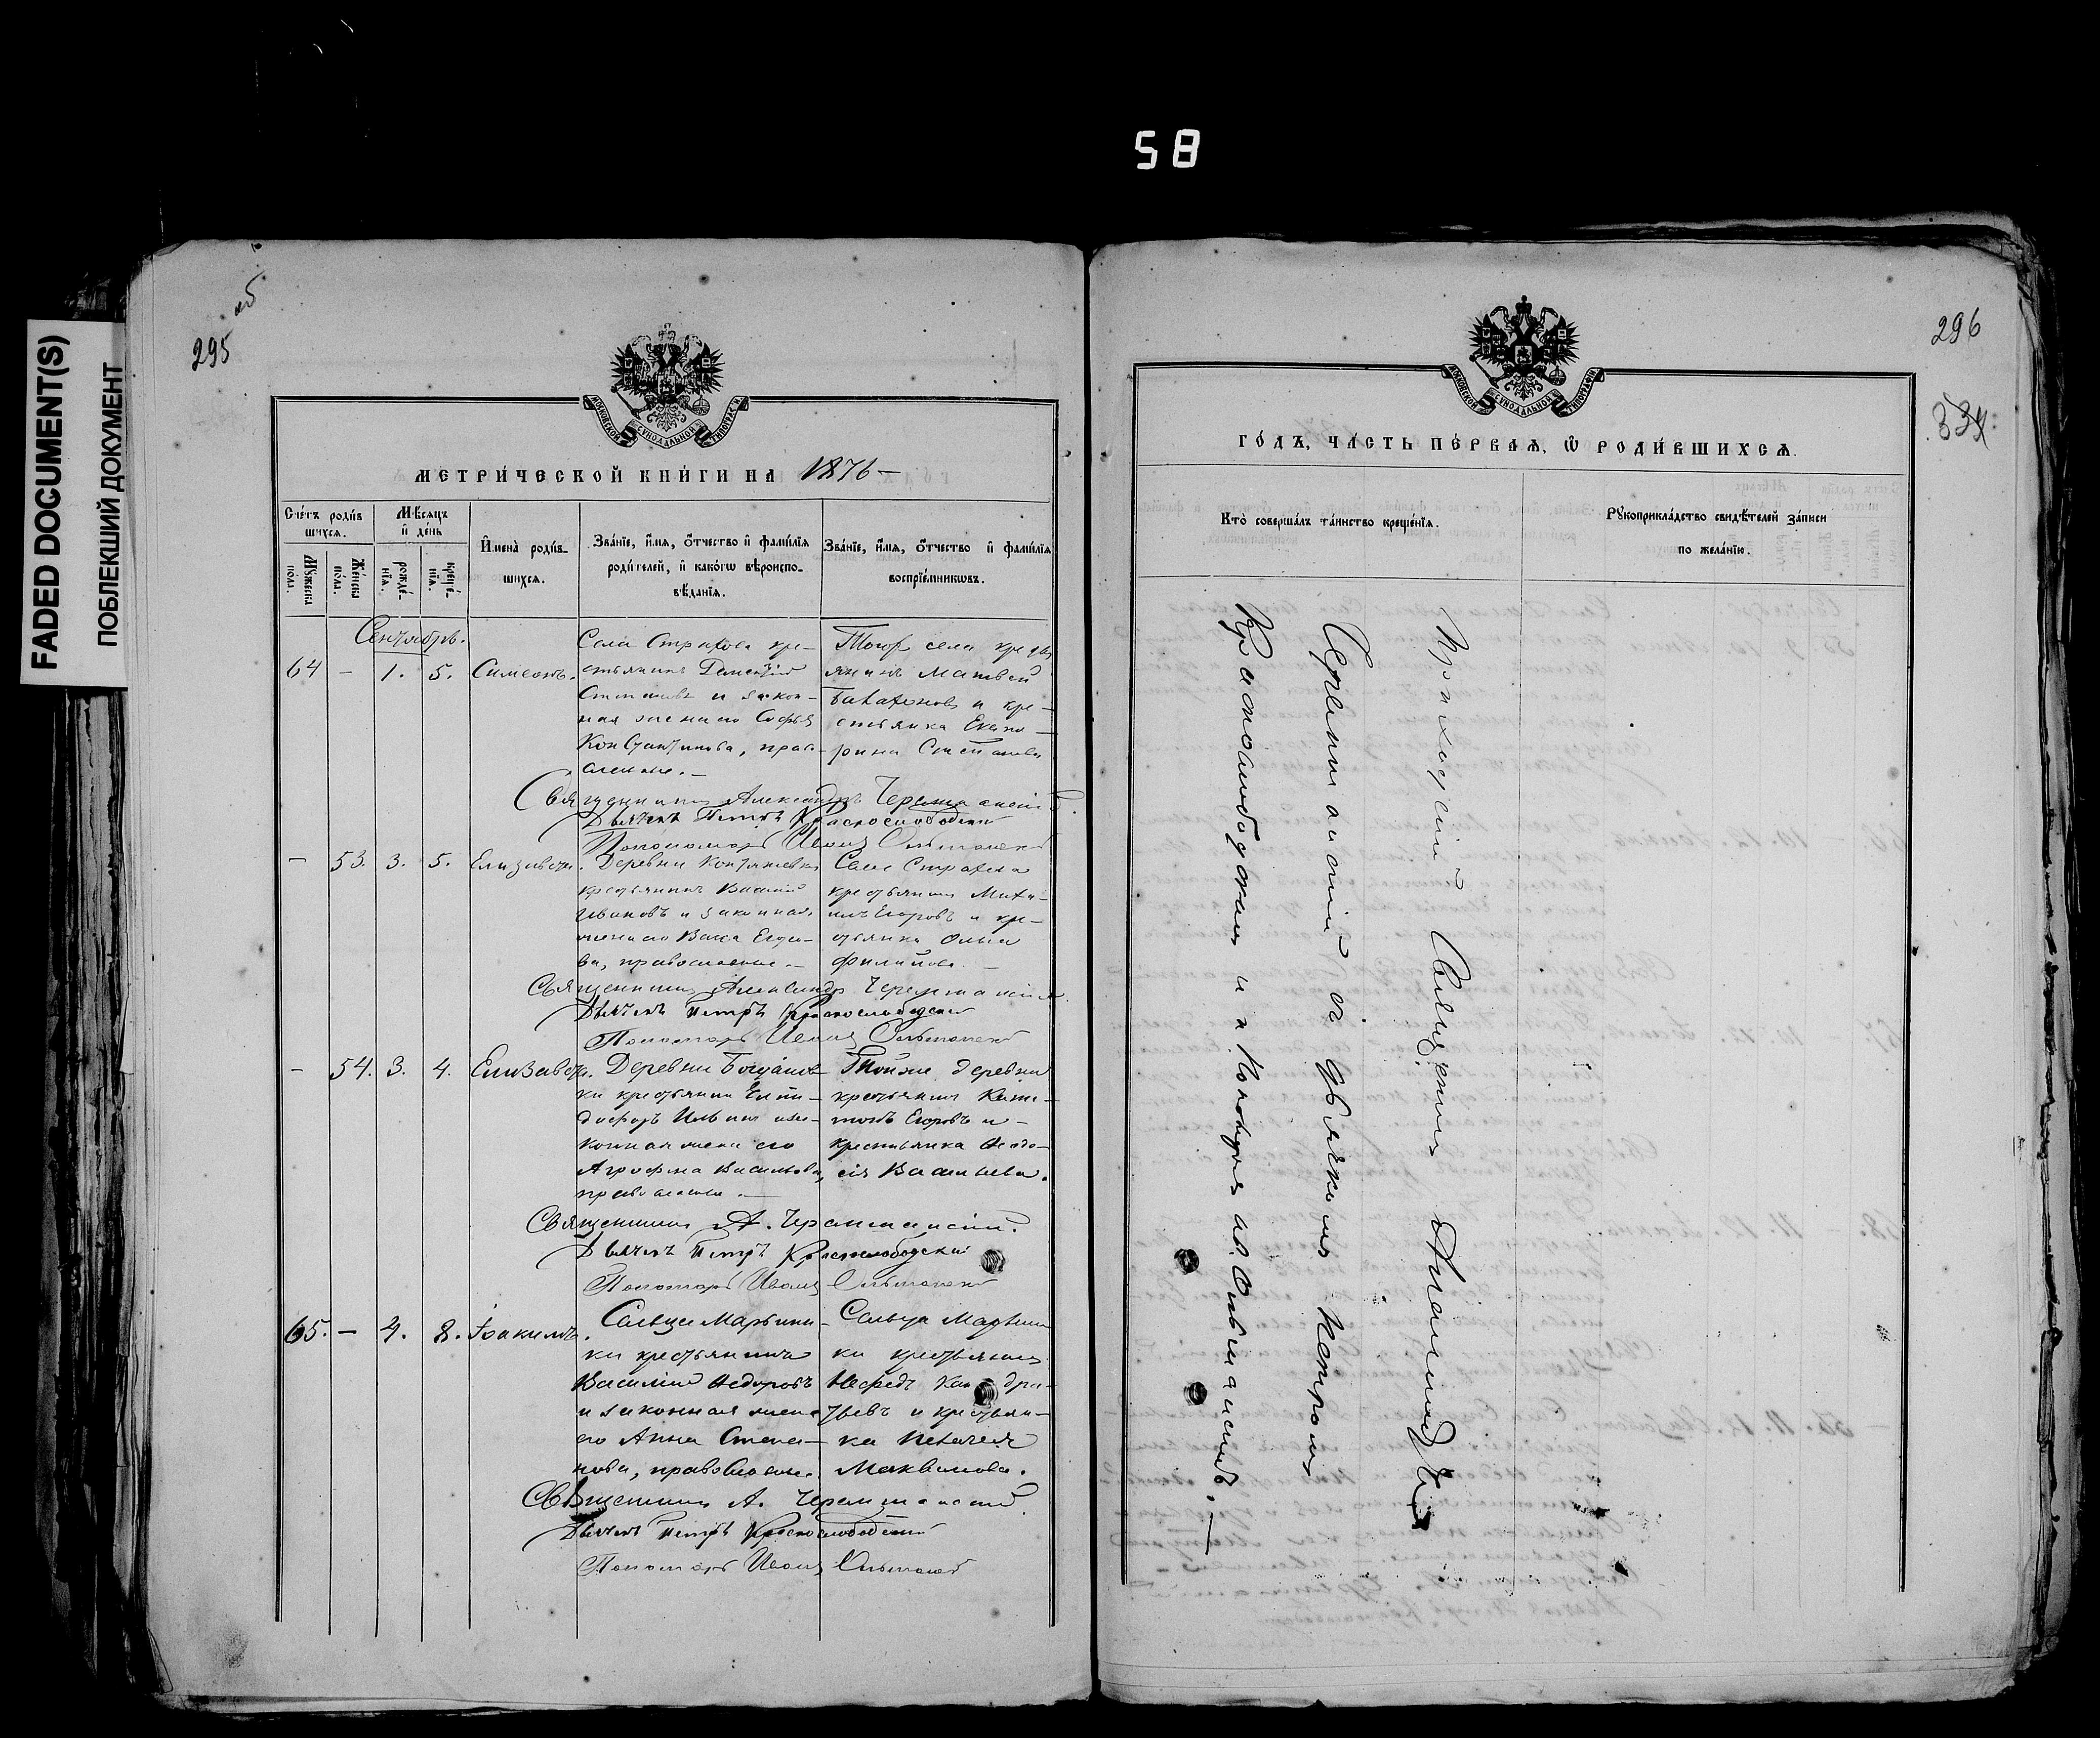 58
FADED DOCUMENT(S)
ПОБЛЕКШИЙ ДОКУМЕНТ
295 об
МОСКОВСКОЙ СѴНОДАЛЬНОЙ ТИПОГРАФІИ
МЕТРИ́ЧЕСКОЙ КНИ́ГИ НА 1876 –
Сче́тъ роди́в
шихсѧ.
Мꙋ́жеска
по́ла.
Же́нска
по́ла.
Мѣ́сѧцъ
и҆ де́нь
рожде́-
нїѧ.
креще́-
нїѧ.
И҆мена̀ роди́в-
шихсѧ.
Зва́нїе, и҆́мѧ, ѻ҆́тчество и҆ фами́лїѧ
роди́телей, и҆ како́гѡ вѣроиспо-
вѣ́данїѧ.
Зва́нїе, и҆́мѧ, ѻ҆́тчество и҆ фами́лїѧ
воспрїе́мникѡвъ.
Сентябрь.
64 – 1. 5. Симеонъ.
Села Страхова кре-
стьянинъ Дементій
Степановъ и закон-
ная жена его Софья
Константинова, прав-
славные. –
Тогож села крестья
янинъ Матвей
и кре-
стьянка Екате-
рина Степанова
Священникъ Александръ Черемшанскій
Дьячекъ Петръ Краснослободскій
Пономарь Иванъ Ольшанскій
– 53. 3. 5. Елизавета.
Деревни
крестьянинъ Василій
Ивановъ и законная
жена его Васса Егоро-
ва, православные. –
Села Страхова
крестьянинъ Миха-
илъ Егоровъ и кре-
стьянка Ольга
Филипова. –
Священникъ Александръ Черемшанскій
Дьячекъ Петръ Краснослободскій
Пономарь Иванъ Ольшанскій
– 54. 3. 4. Елизавета.
Деревни Богданов-
ки крестьянин Епи-
дифоръ Ильинъ и за-
конная жена его
Агрофена Васильева,
православные. –
Тойже деревни
крестьянинъ
Егоровъ и –
крестьянка Ѳеодо-
сія Васильева.
Священникъ А. Черемшанскій.
Дьячекъ Петръ Краснослободскій
Пономарь Иванъ Ольшанскій
65. – 4. 8. Іоакимъ.
Сельца Марьин-
ки крестьянинъ
Василій Ѳедоровъ
и законная жена
его Анна Степа-
нова, православные.
Сельца Марьин
ки крестьянинъ
Нефедъ Кон дра-
тьевъ и крестьян-
ка Пелагея
Священникъ А. Черемшанскій
Дьячекъ Петръ Краснослободскій
Пономарь Иванъ Ольшанскій
296
334
МОСКОВСКОЙ СѴНОДАЛЬНОЙ ТИПОГРАФІИ
ГО́ДЪ, ЧА́СТЬ ПЕ́РВАѦ, Ѡ҆ РОДИ́ВШИХСѦ.
Кто̀ соверша́лъ та́инство креще́нїѧ.
Рꙋкоприкла́дство свидѣ́телей за́писи
по жела́нїю.
Приходскій Священникъ Александръ
Черемшанскій съ дьячкомъ Петромъ
Краснослободскимъ и Пономаремъ Ольшанскимъ. –